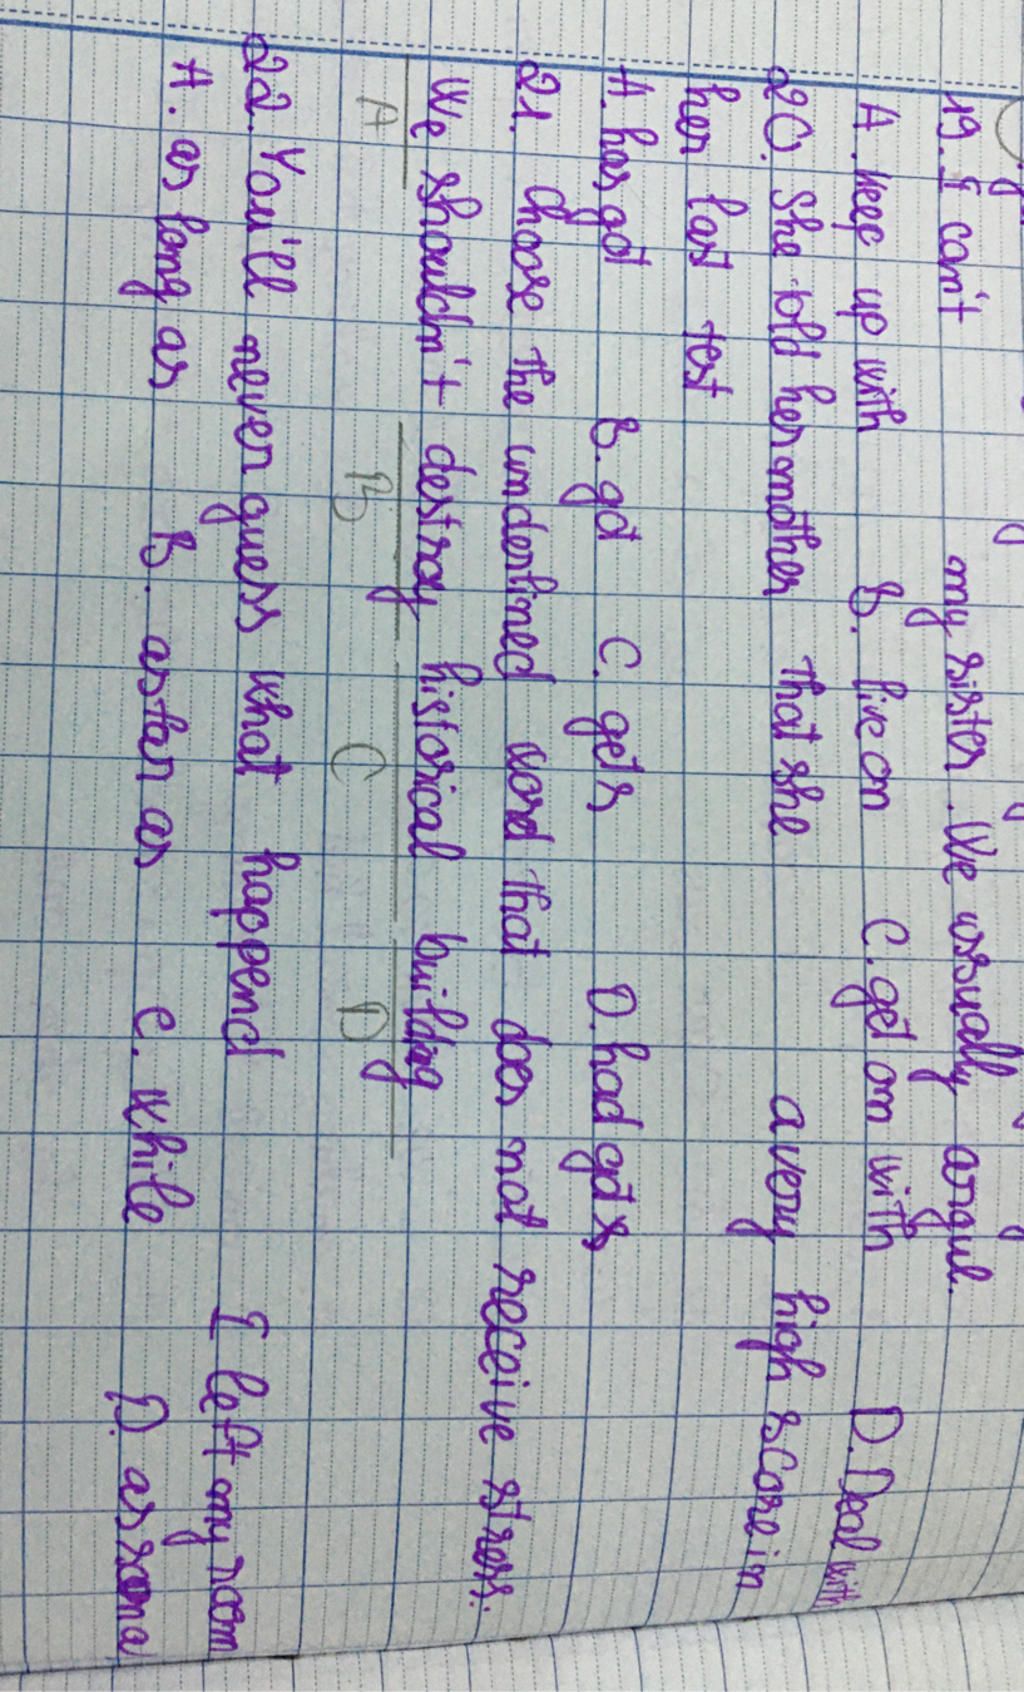 19. I can't my sister. We ussually argul.
A. keep up with B. live on C. get on with D. Deal with
20. She told her mother that she a very high score in
her last test
A. has got B. got C. gets D. had got
21. choose the underlined word that does not receive stress.
We shouldn't destroy historical building
A B C D
22. You'll never guess what happend I left my room
A. as long as B. as far as C. while D. as